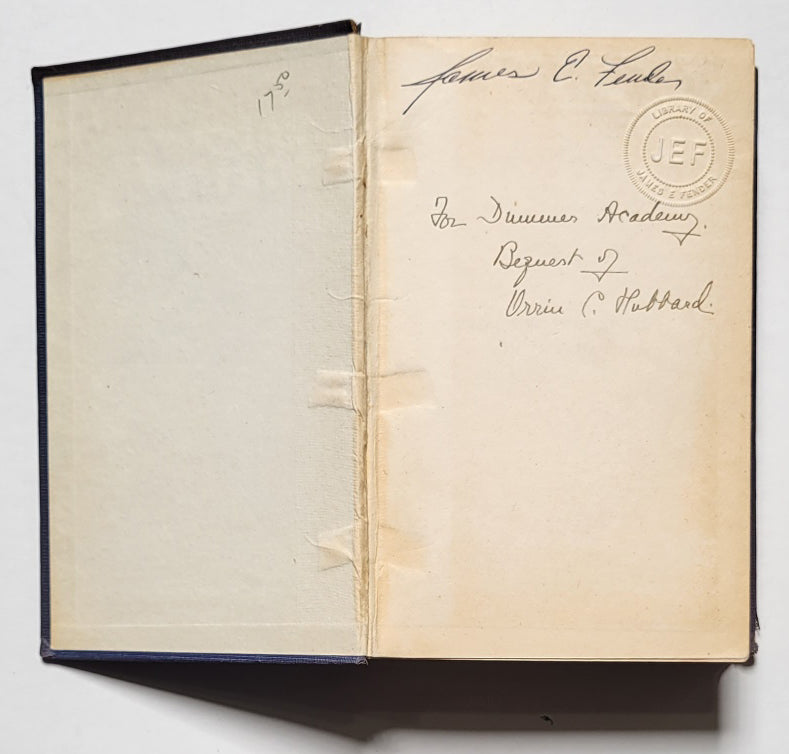 17.50
James E. Fender
LIBRARY OF
JEF
JAMES E FENDER
For Dummer Academy.
Bequest of
Orrin C. Hubbard.